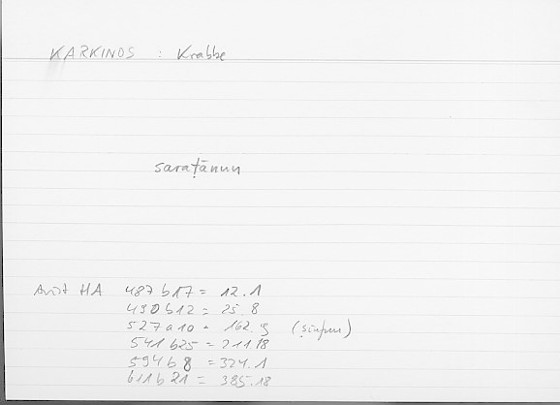 KARKINOS : Krabbe
saraṭānun
Arist HA 487 b17 = 12.1
490 b12 = 25.8
527 a10 = 162.9 (ṣinfun)
541 b25 = 211 18
594 b 8 = 324.1
611 b 21 = 385.18